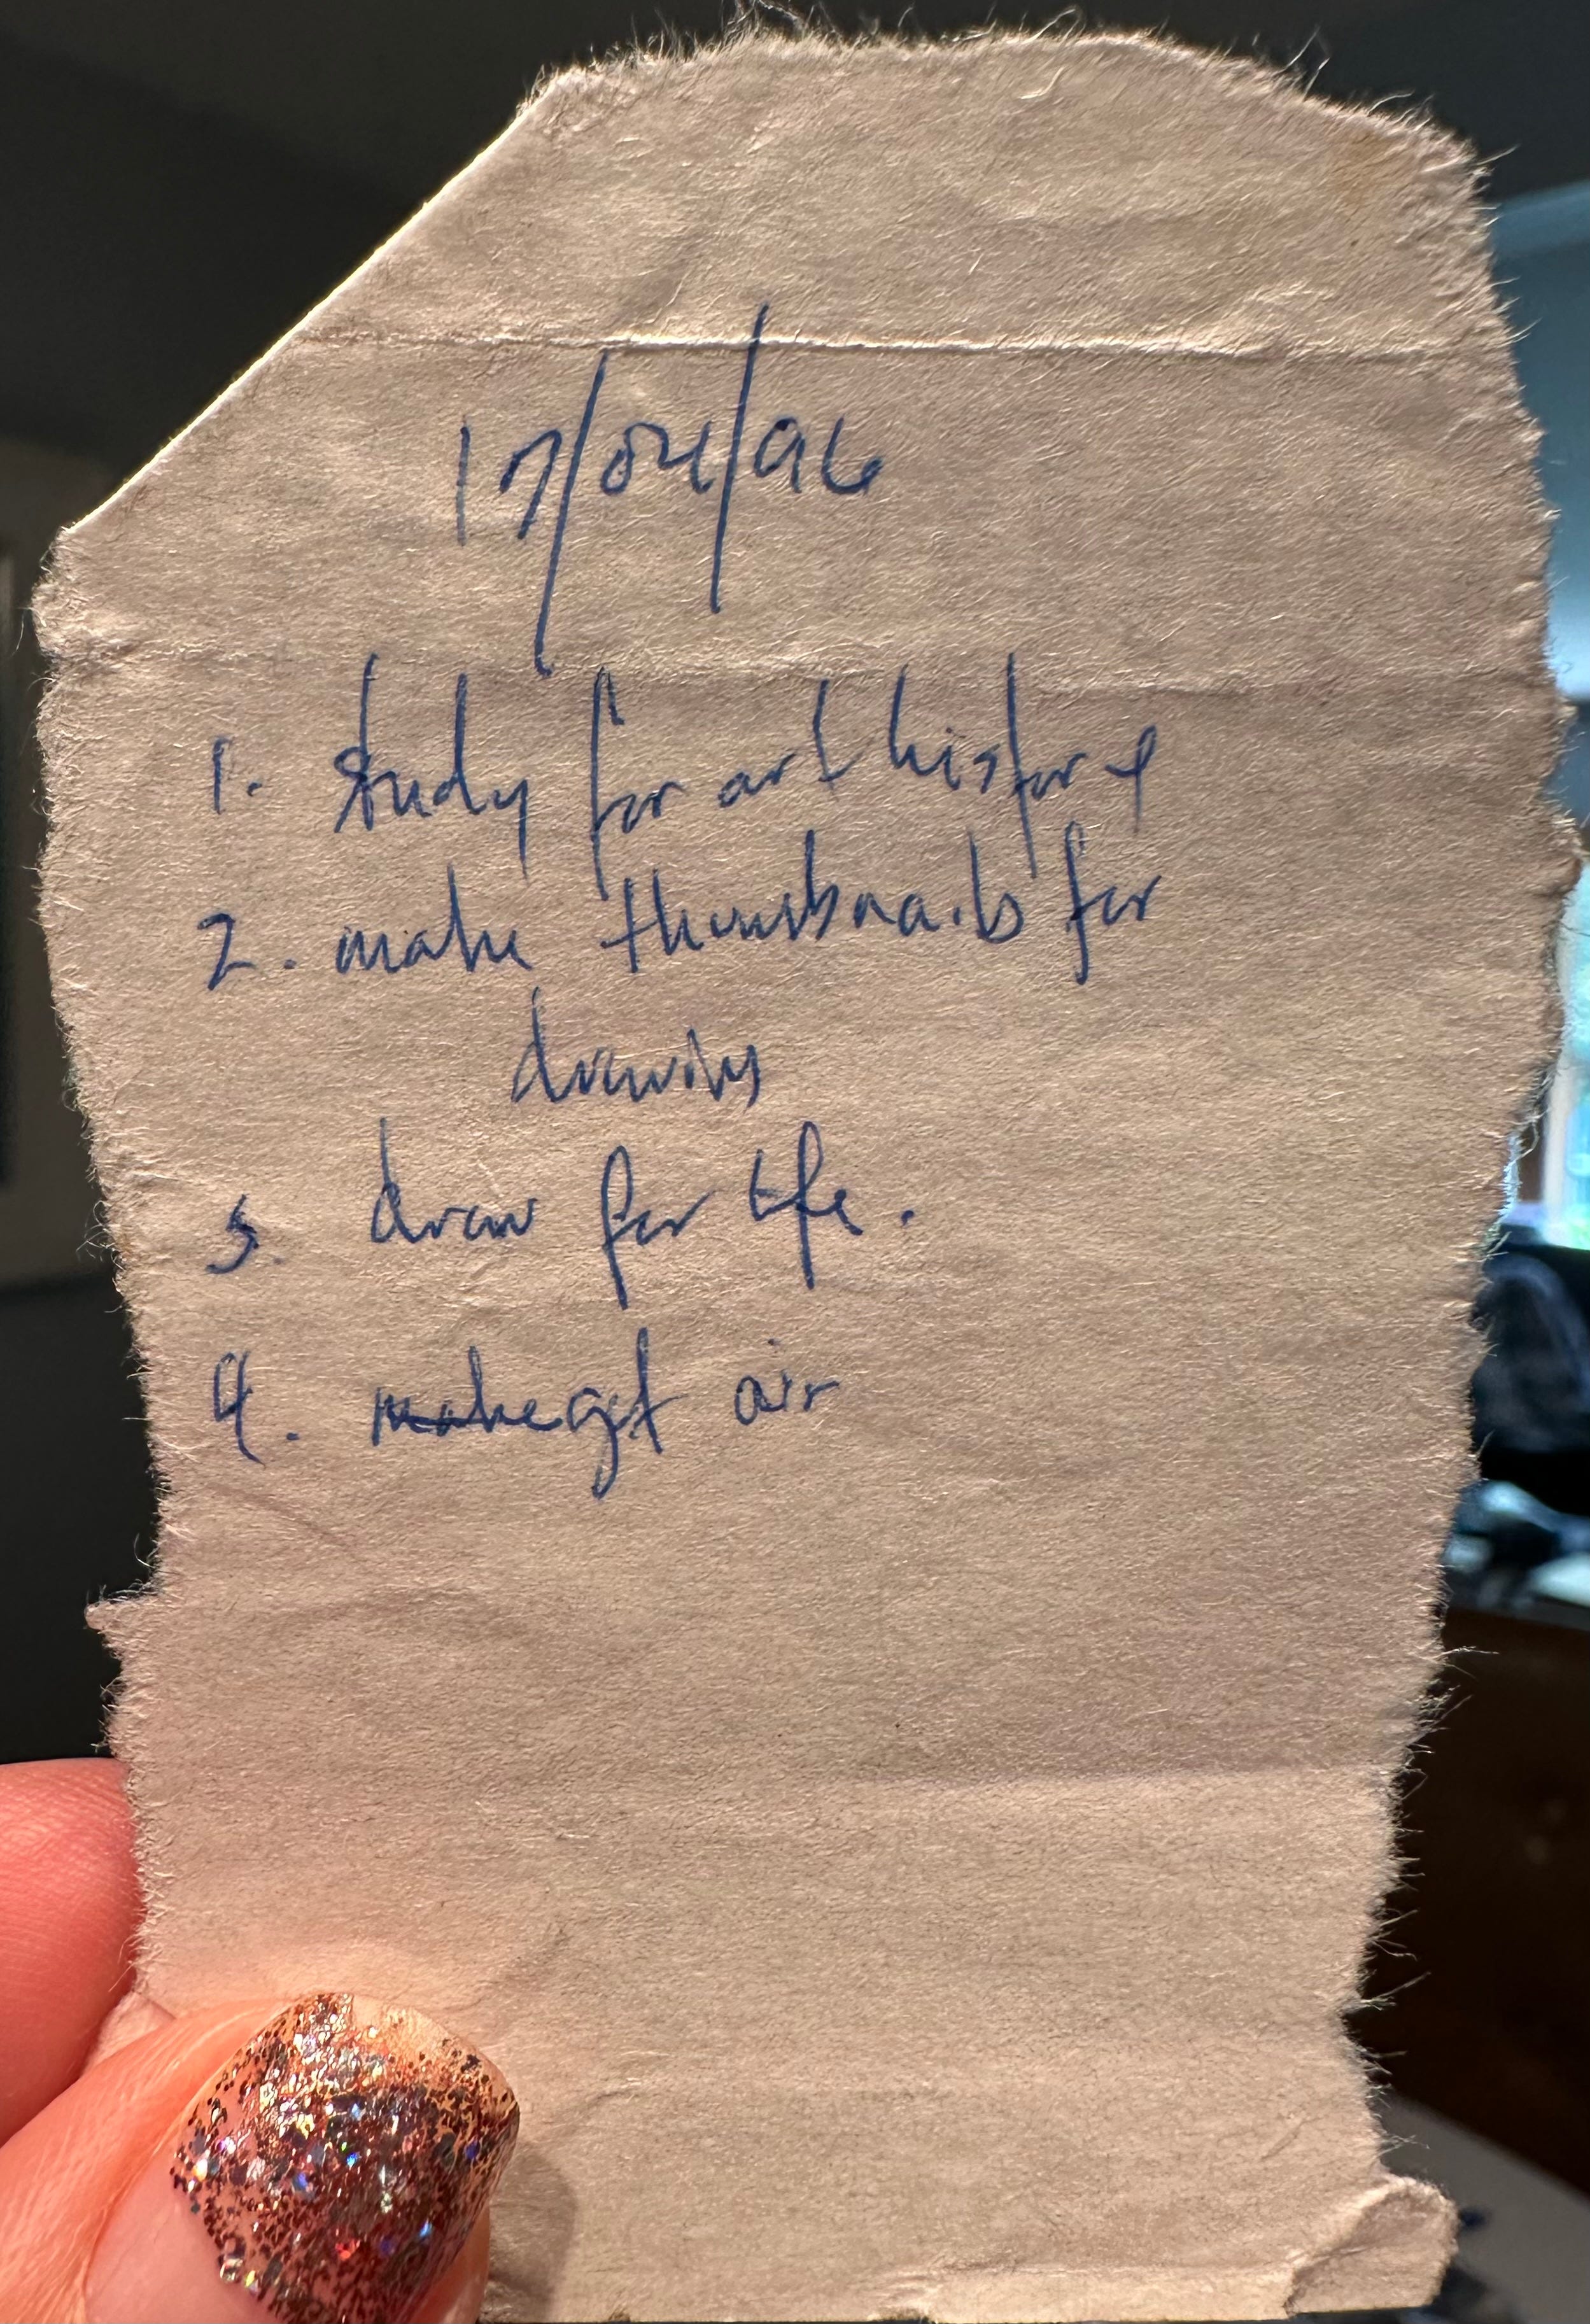 17/04/96
1. study for art history
2. make thumbnails for
drawing
3. draw for life.
4. make get air